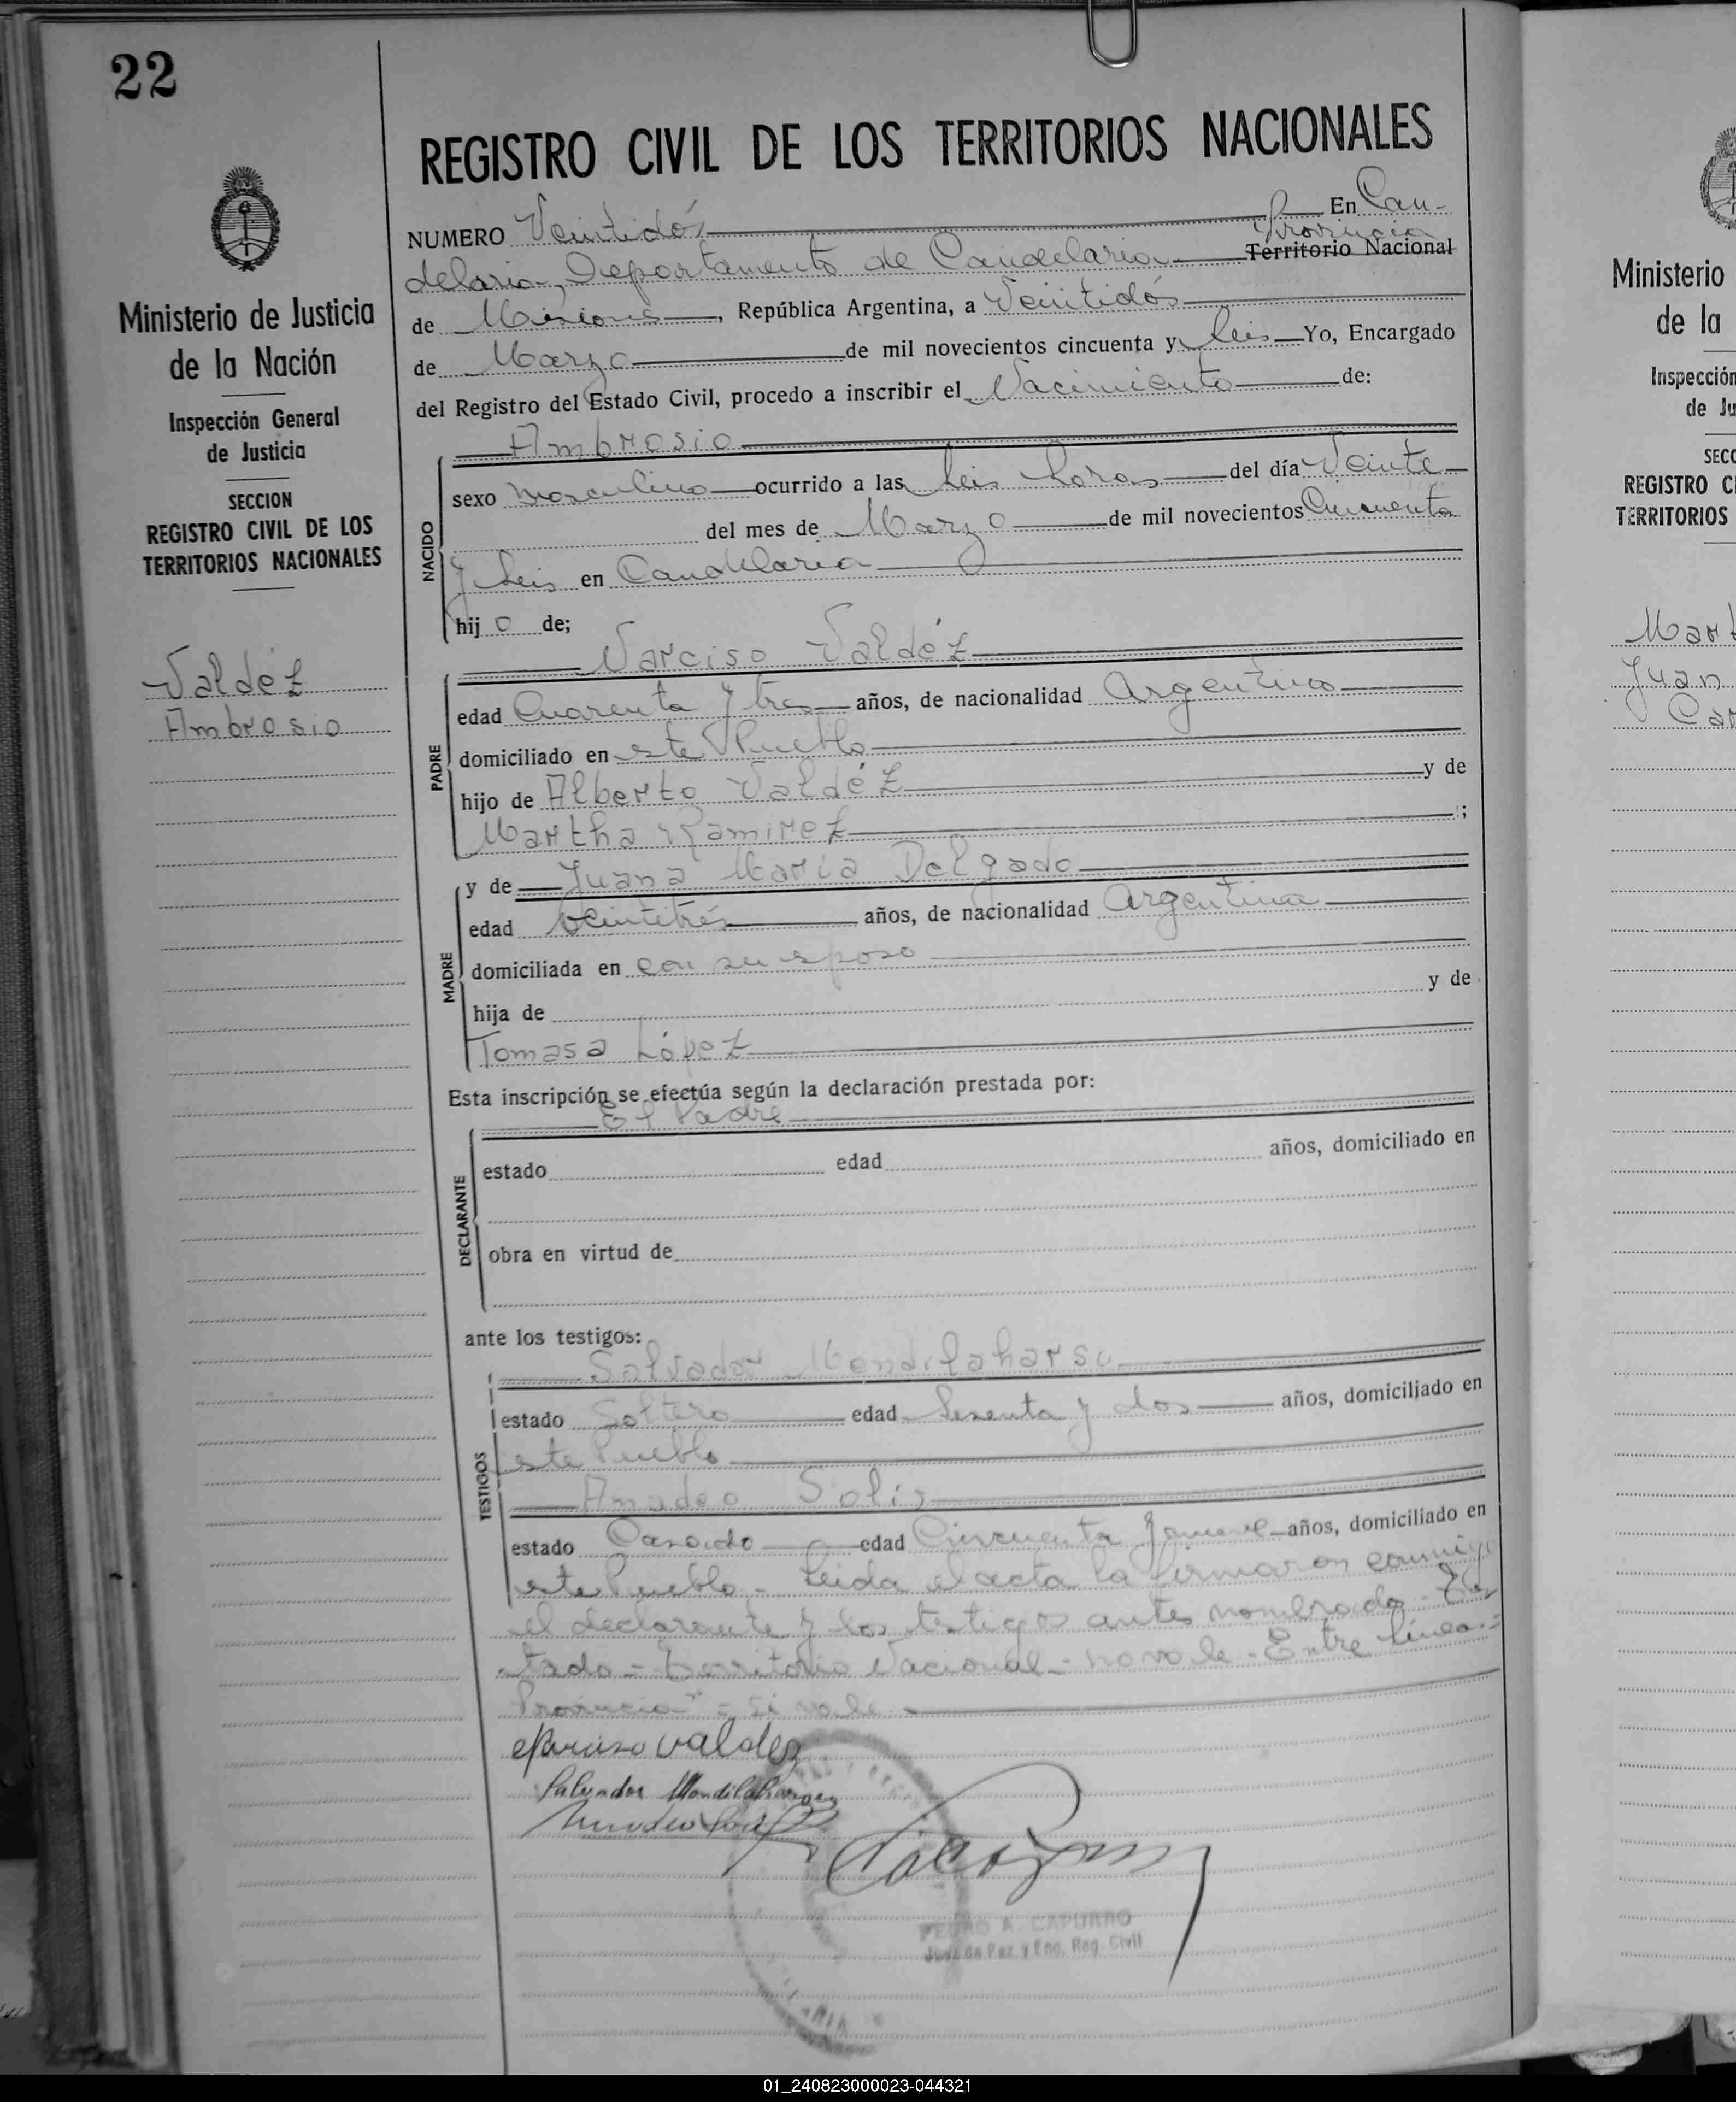 22
REGISTRO CIVIL DE LOS TERRITORIOS NACIONALES
NUMERO Veintidós En Can-
Provincia
delaria, Departamento de Candelaria Territorio Nacional
de Misiones, República Argentina, a Veintidós
de Marzo de mil novecientos cincuenta y seis Yo, Encargado
del Registro del Estado Civil, procedo a inscribir el Nacimiento de:
Ministerio de Justicia
de la Nación
Inspección General
de Justicia
SECCION
REGISTRO CIVIL DE LOS
TERRITORIOS NACIONALES
Valdéz
Ambrosio
NACIDO
Ambrosio
sexo masculino ocurrido a las seis horas del día Veinte
del mes de Marzo de mil novecientos Cincuenta
y seis en Candelaria
hijo de;
PADRE
Narciso Valdéz
edad Cuarenta y tres años, de nacionalidad Argentino
domiciliado en este Pueblo
hijo de Alberto Valdéz y de
Martha Ramirez ;
MADRE
y de Juana María Delgado
edad Veintitrés años, de nacionalidad Argentina
domiciliada en con su esposo
hija de y de
Tomasa López
Esta inscripción se efectúa según la declaración prestada por:
DECLARANTE
El Padre
estado edad años, domiciliado en
obra en virtud de
ante los testigos:
TESTIGOS
Salvador Mondilaharsu
estado Soltero edad Sesenta y dos años, domiciliado en
este Pueblo
Amadeo Solis
estado Casado edad Cincuenta y nueve años, domiciliado en
este Pueblo - Leida el acta la firmaron conmigo
el declarante y los testigos antes nombrado -
tado - Territorio Nacional - no vale - Entre linea -
Provincia" - si vale
Narciso Valdez
Salvador Mondilaharsu
PEDRO A. CAPURRO
Juez de Paz y Enc. Reg. Civil
Ministerio
de la
Inspección
de Ju
SECC
REGISTRO CI
TERRITORIOS
Mart
Juan
Car
01_240823000023-044321